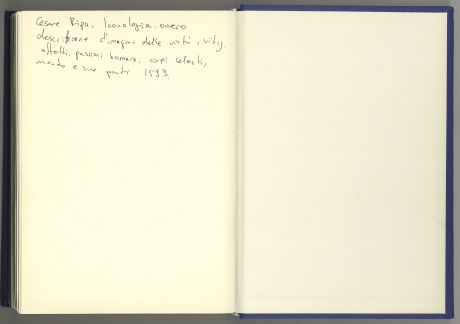 Cesare Ripa, Iconologia, overo
descrittione d'imagini delle virtù, vitij,
affetti, passioni humane, corpi celesti,
mondo e sue parti 1593.